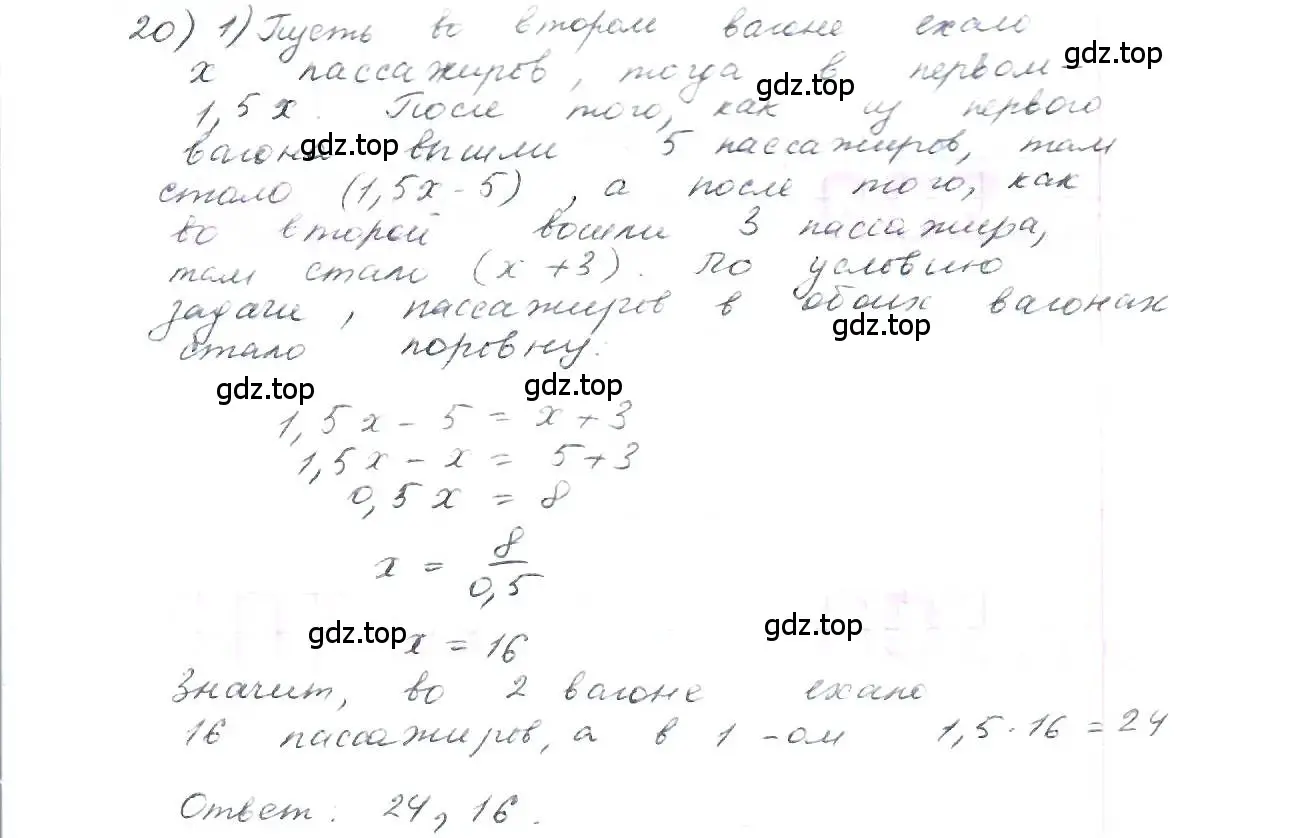 20) 1) Пусть во втором вагоне ехало
gdz.top
x пассажиров, тогда в первом -
gdz.top
1,5x. После того, как из первого
вагона вышли 5 пассажиров, там
gdz.top
стало (1,5x - 5), а после того, как
во второй вошли 3 пассажира,
там стало (x + 3). По условию
задачи, пассажиров в обоих вагонах
gdz.top
стало поровну:
gdz.top gdz.top
1,5x - 5 = x + 3
1,5x - x = 5 + 3
0,5x = 8
x = 8/0,5
gdz.top x = 16 gdz.top
Значит, во 2 вагоне ехало
16 пассажиров, а в 1-ом 1,5 · 16 = 24
Ответ: 24, 16.